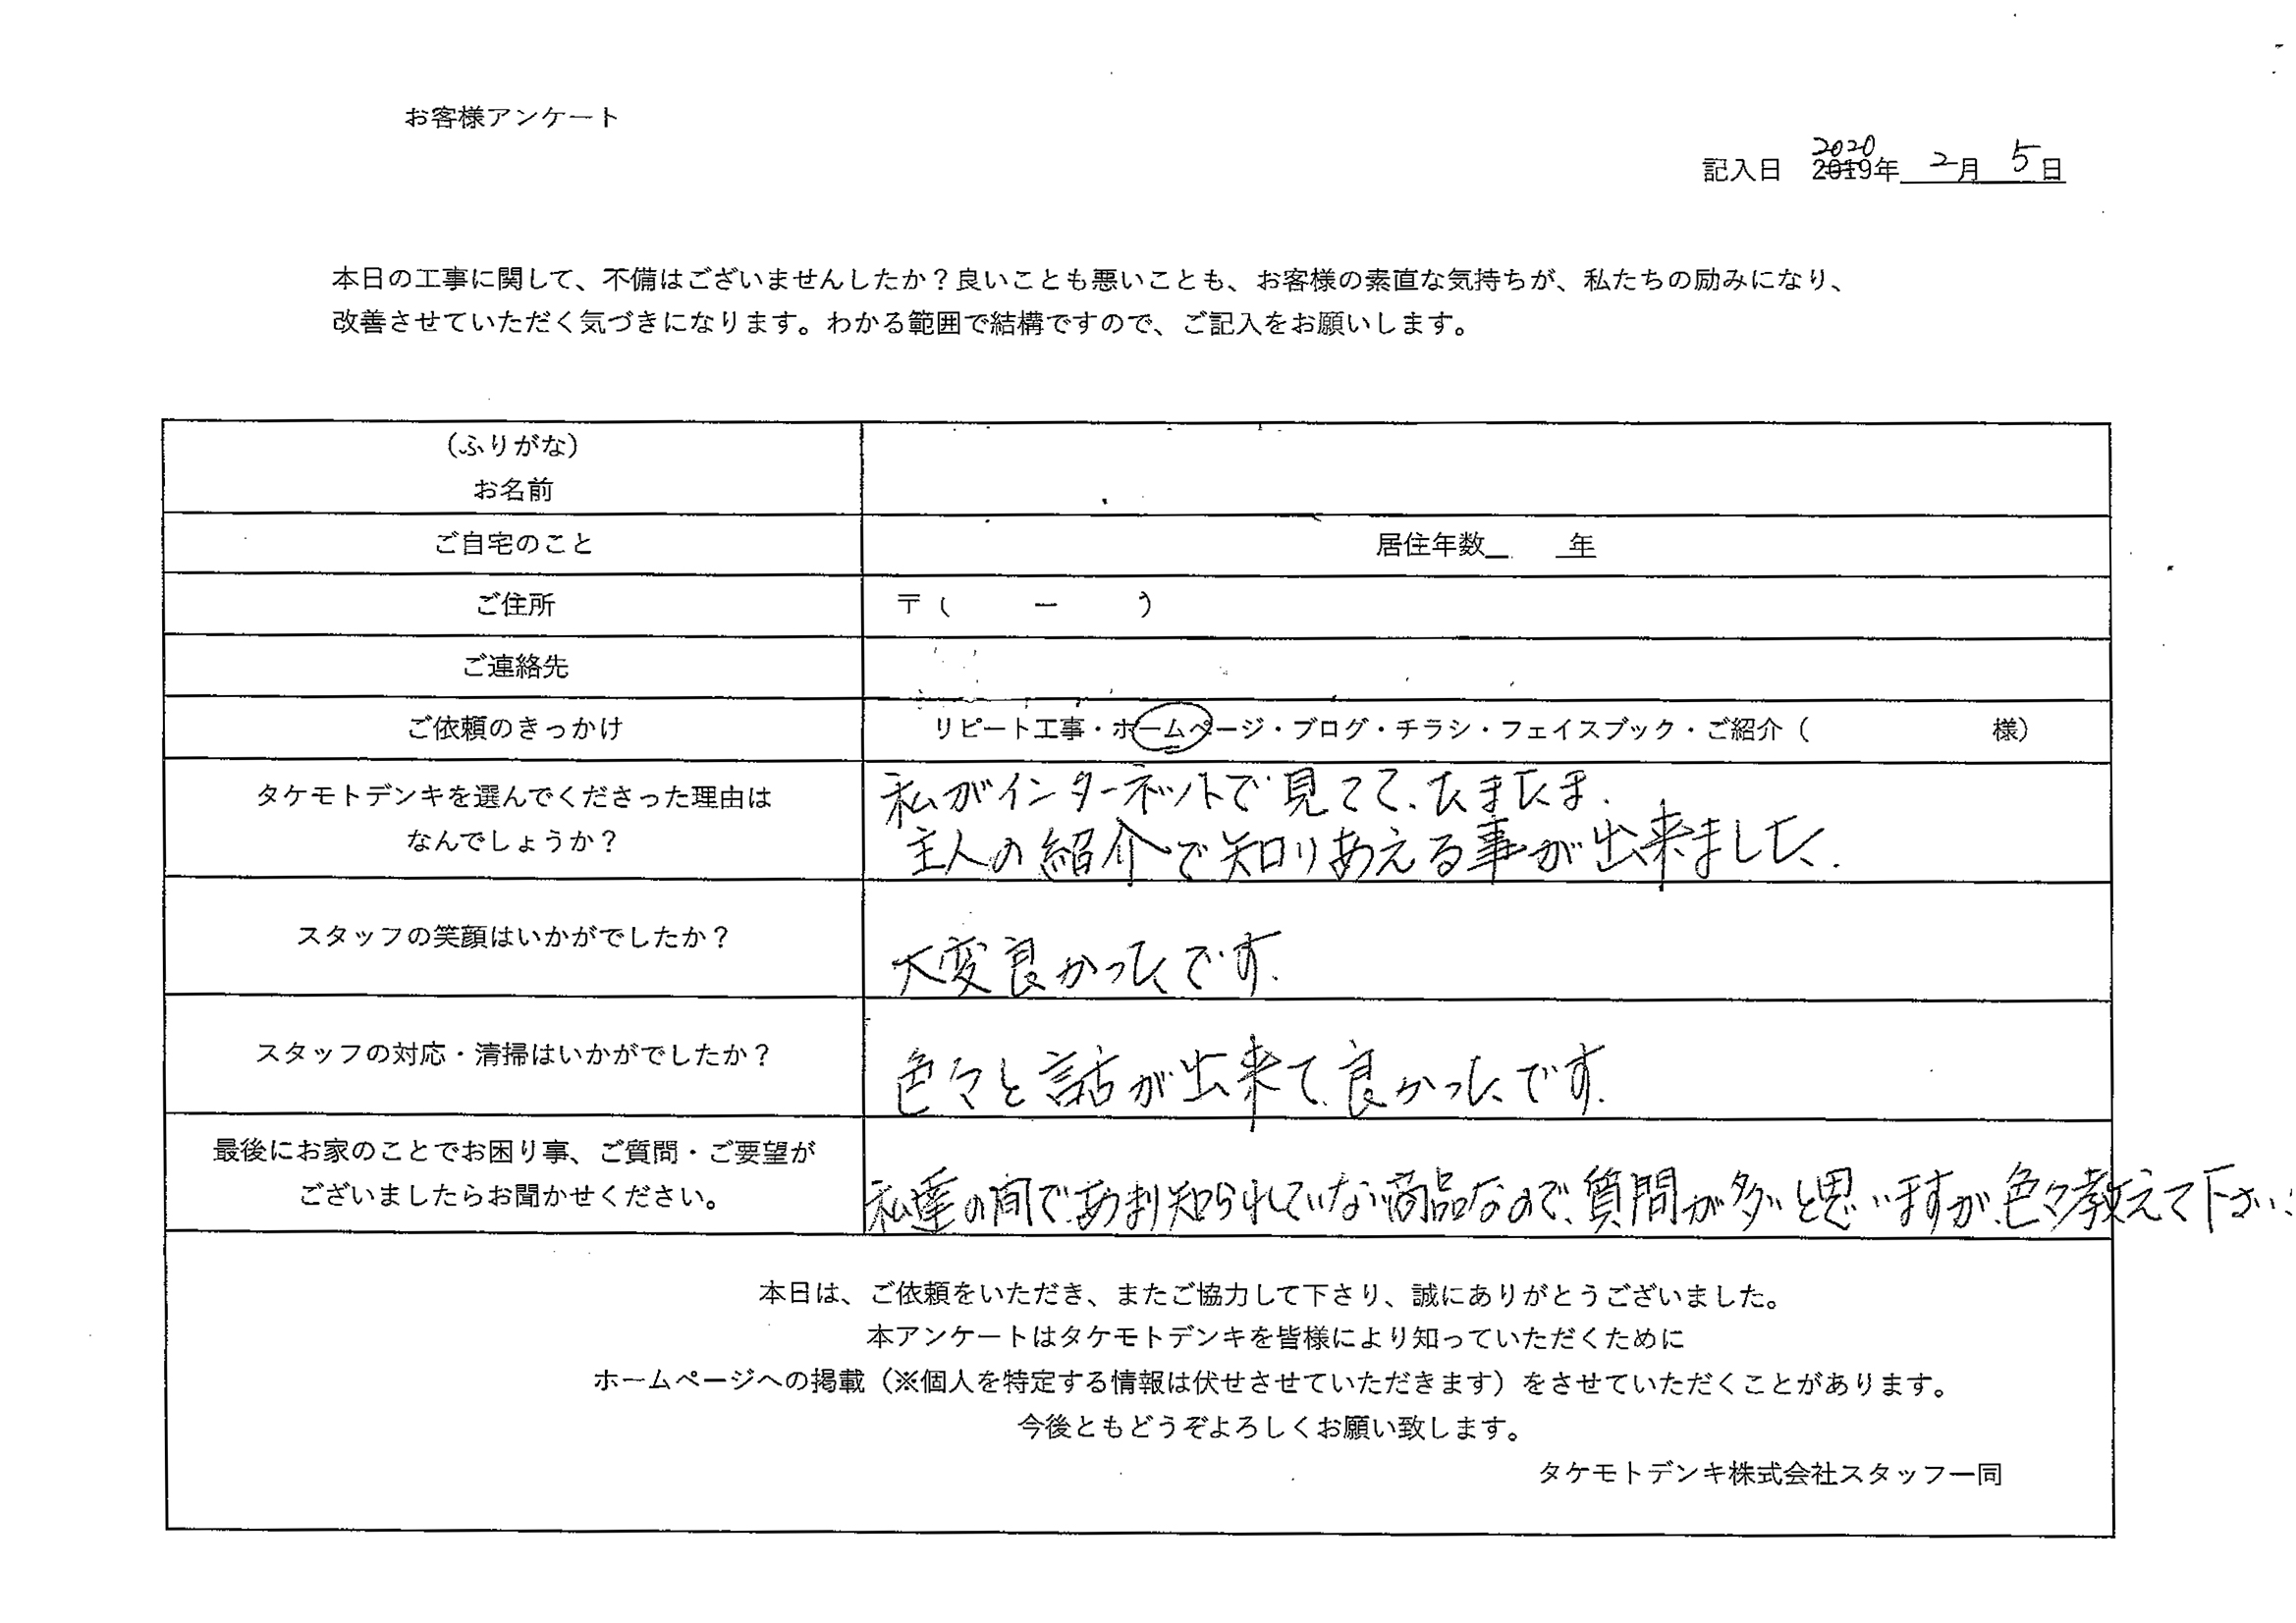 お客様アンケート
2020
記入日 2019年 2月 5日
本日の工事に関して、不備はございませんしたか？良いことも悪いことも、お客様の素直な気持ちが、私たちの励みになり、
改善させていただく気づきになります。わかる範囲で結構ですので、ご記入をお願いします。
（ふりがな）
お名前
ご自宅のこと 居住年数 年
ご住所 〒（ － ）
ご連絡先
ご依頼のきっかけ リピート工事・ホームページ・ブログ・チラシ・フェイスブック・ご紹介（ 様）
タケモトデンキを選んでくださった理由は
なんでしょうか？
私がインターネットで見てて、たまたま、
主人の紹介で知りあえる事が出来ました.
スタッフの笑顔はいかがでしたか？
大変良かったです.
スタッフの対応・清掃はいかがでしたか？
色々と話が出来て、良かったです.
最後にお家のことでお困り事、ご質問・ご要望が
ございましたらお聞かせください。
私達の間で、あまり知られていない商品なので、質問が多いと思いますが、色々教えて下さい.
本日は、ご依頼をいただき、またご協力して下さり、誠にありがとうございました。
本アンケートはタケモトデンキを皆様により知っていただくために
ホームページへの掲載（※個人を特定する情報は伏せさせていただきます）をさせていただくことがあります。
今後ともどうぞよろしくお願い致します。
タケモトデンキ株式会社スタッフ一同